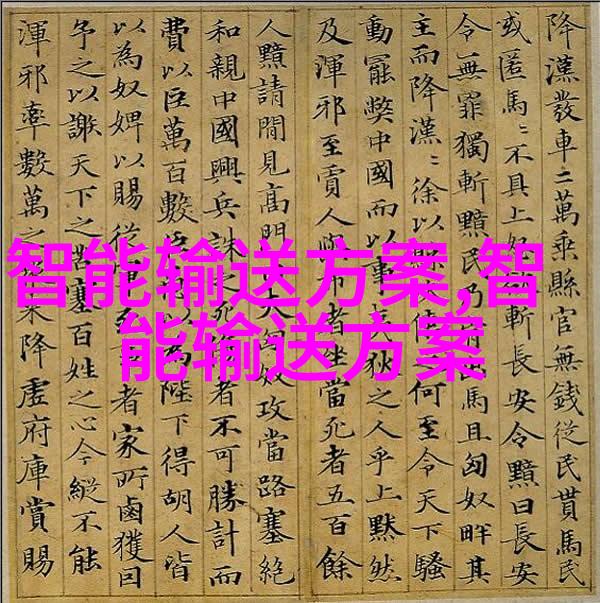 智能输送方案,智
能输送方案
降漢發車二萬乘縣官無錢從民貰馬民
或匿馬〻不具上斬長安令黯曰長安
令無罪獨斬黯民乃馬且匈奴畔其
主而降漢〻徐以縣何至令天下騷
動罷獘中國而以事夷狄之人乎上默然
及渾邪至賈人市者坐當死者五百餘
人黯請閒見高門夫匈奴攻當路塞絕
和親中國興兵誅之死者不可勝計而
費以巨萬百數臣以為陛下得胡人皆
以為奴婢以賜從死者家所鹵獲因
予之以謝天下之苦塞百姓之心今縱不能
渾邪率數萬之來降虛府庫賞賜